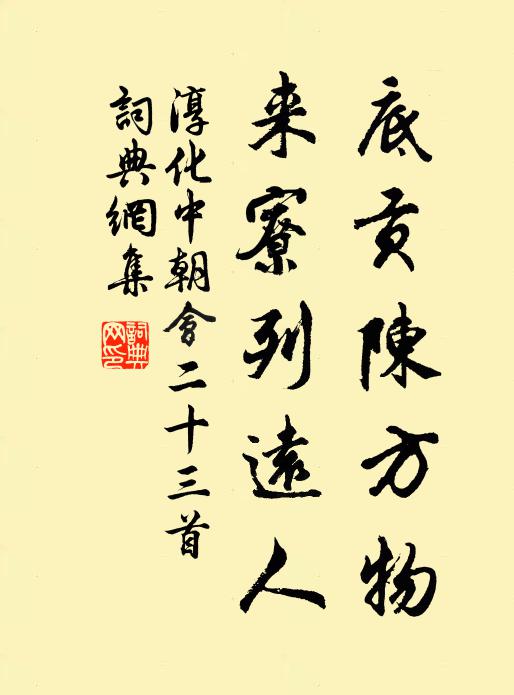 底贡陳方物
来寮列遠人
淳化中朝會二十三首
詞典網集
詞典網印